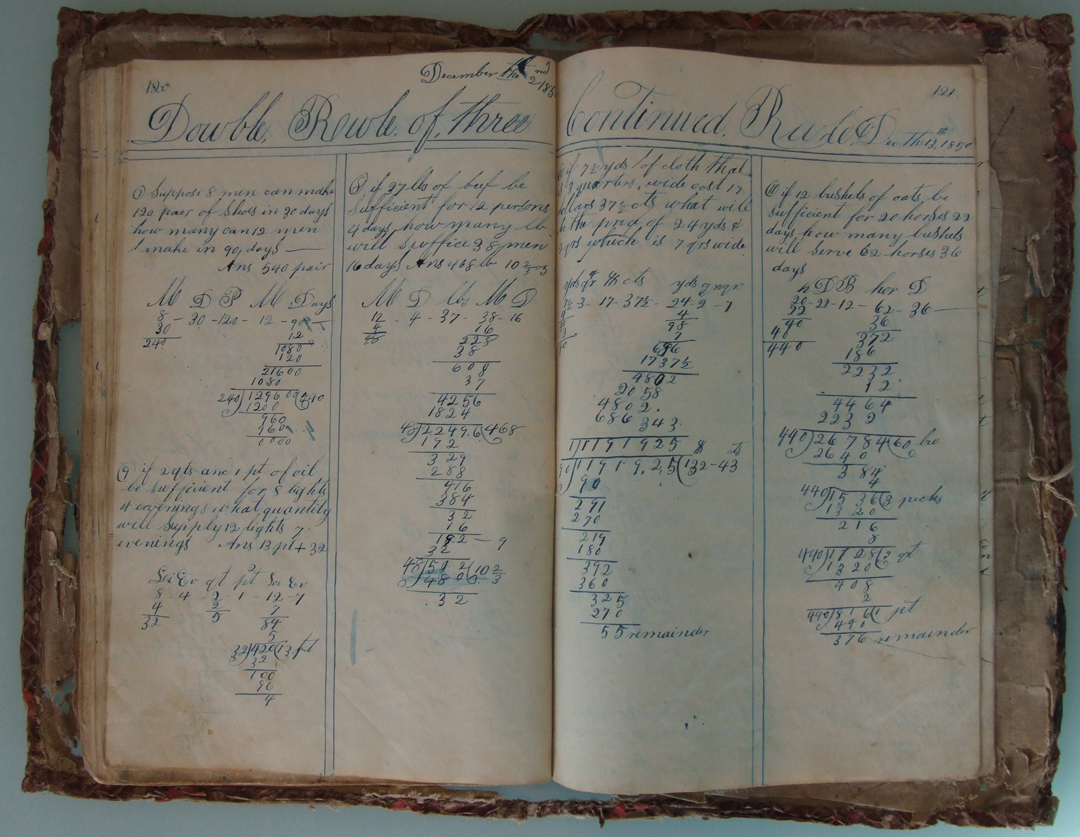 120
December the 2nd 185
Dowble Rowle of three
① Suppose 8 men can make
120 pair of Shoes in 30 days
how many can 12 men
make in 90 days
Ans 540 pair
M D P M Days
8 - 30 - 120 - 12 - 90
30 12
240 1080
120
21600
1080
240)129600(540
1200
960
960
0000
Q if 2 qts and 1 pt of oil
be sufficient for 8 lights
4 evenings what quantity
will Supply 12 lights 7
evenings Ans 13 pt + 32
8 4 2 1 - 12 - 7
4 2 7
32 5 84
5
32)420(13 pt
32
100
96
4
Q if 37 lbs of buf be
sufficient for 12 persons
4 days how many lb
will suffice 38 men
16 days Ans 468 lb 10 2/3 oz
M D lbs M D
12 - 4 - 37 - 38 - 16
4 16
48 228
38
608
37
4256
1824
48)22496(468
192
329
288
416
384
32
16
192 9
32
48)512(10 2/3
480
32
121
Continued Rule
Dec th 13th, 1850
if 7½ yds of cloth that
quarters wide cost 17
dollars 37½ cts what will
be the price of 24 yds &
2 qrs which is 7 qrs wide
yds qr cts yds qr qr
3 - 17 - 37½ - 24 - 2 - 7
4
98
7
686
17375
4802
2058
4802
686 343
11191925 $
90)11919,25(132-43
90
291
270
219
180
392
360
325
270
55 remainder
Q if 12 bushels of oats be
sufficient for 20 horses 22
days how many bushels
will serve 62 horses 36
days
h D B hor D
20 - 22 - 12 - 62 - 36
22 36
40 372
40 186
440 2232
12
4464
2232
440)26784(60 bu
2640
384
4
440)1536(3 pecks
1320
216
8
440)1728(3 qt
1320
408
2
440)816(1 pt
440
376 remainder